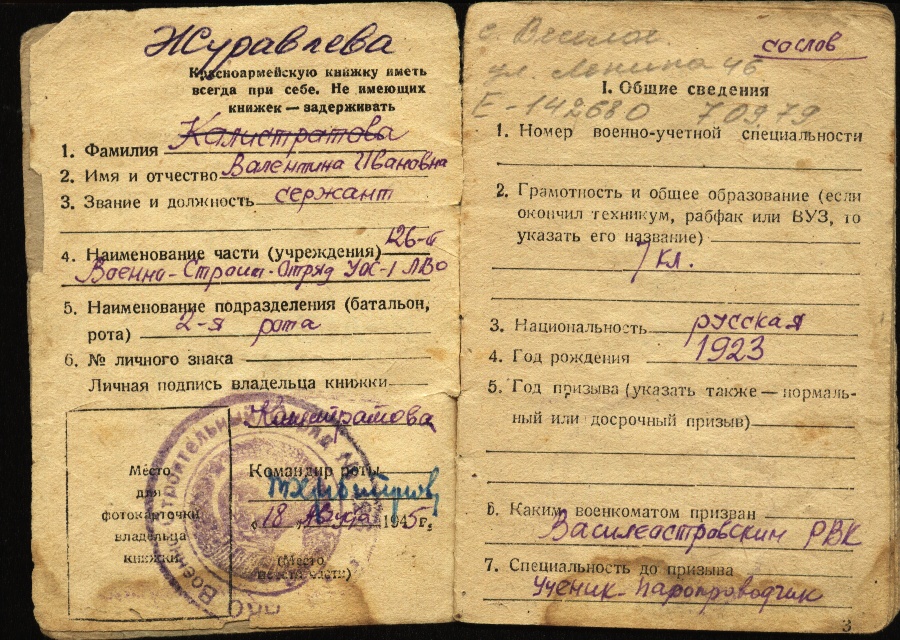 Журавлева
Красноармейскую книжку иметь
всегда при себе. Не имеющих
книжек — задерживать
Калистратова
1. Фамилия
2. Имя и отчество Валентина Ивановна
3. Звание и должность сержант
4. Наименование части (учреждения) 126-й
Военно-Строит-Отряд УОС-1 ЛВО
5. Наименование подразделения (батальон,
рота) 2-я рота
6. № личного знака
Личная подпись владельца книжки
Калистратова
Место
для
фотокарточки
владельца
книжки
Командир роты
18 1945 г.
(Место
печати части)
с. Веселое
ул. Ленина 46
Е-142680 7.09.79
сослов
I. Общие сведения
1. Номер военно-учетной специальности
2. Грамотность и общее образование (если
окончил техникум, рабфак или ВУЗ, то
указать его название)
7 кл.
3. Национальность русская
4. Год рождения 1923
5. Год призыва (указать также — нормаль-
ный или досрочный призыв)
6. Каким военкоматом призван
Василеостровским РВК
7. Специальность до призыва
Ученик-паропроводчик
3